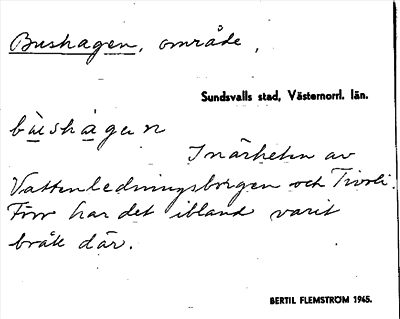 Bushagen, område,
Sundsvalls stad, Västernorrl. län.
bu̱sha̱gen
I närheten av
Vattenledningsborgen och Tivoli.
Förr har det ibland varit
bråk där.
BERTIL FLEMSTRÖM 1965.